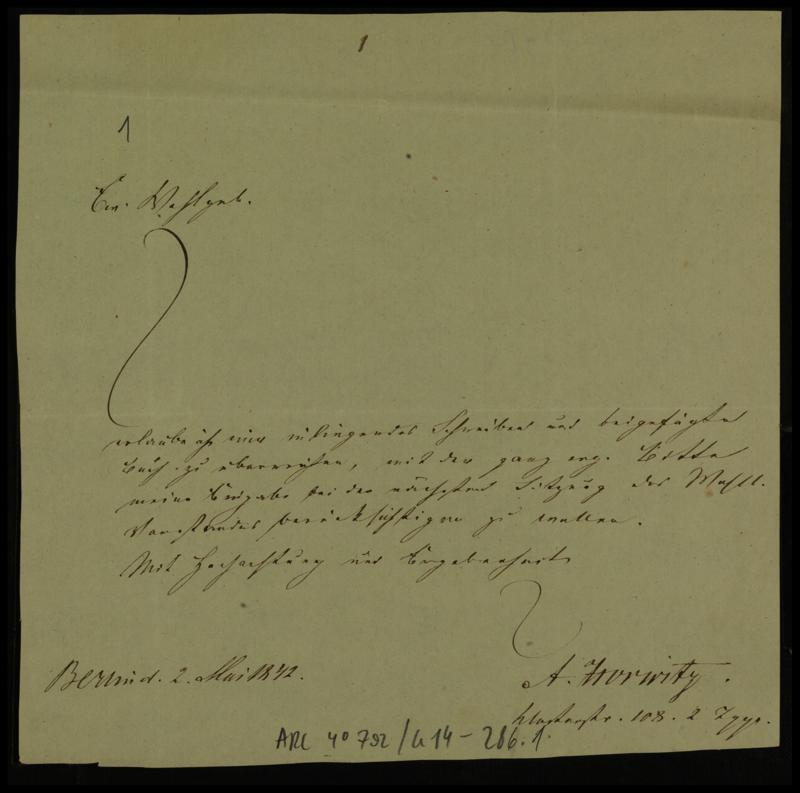 1
1
Ew. Wohlgeb.
erlaube ich mir inliegendes Schreiben und beigefügte
Buch zu überreichen, mit der ganz erg. Bitte
meine Eingabe bei der nächsten Sitzung des Wohll.
Vorstandes berücksichtigen zu wollen.
Mit Hochachtung und Ergebenheit
Berlin d. 2. Mai 1842.
A. Horwitz.
Klosterstr. 108. 2
ARC 4° 792/G 14 - 286.1